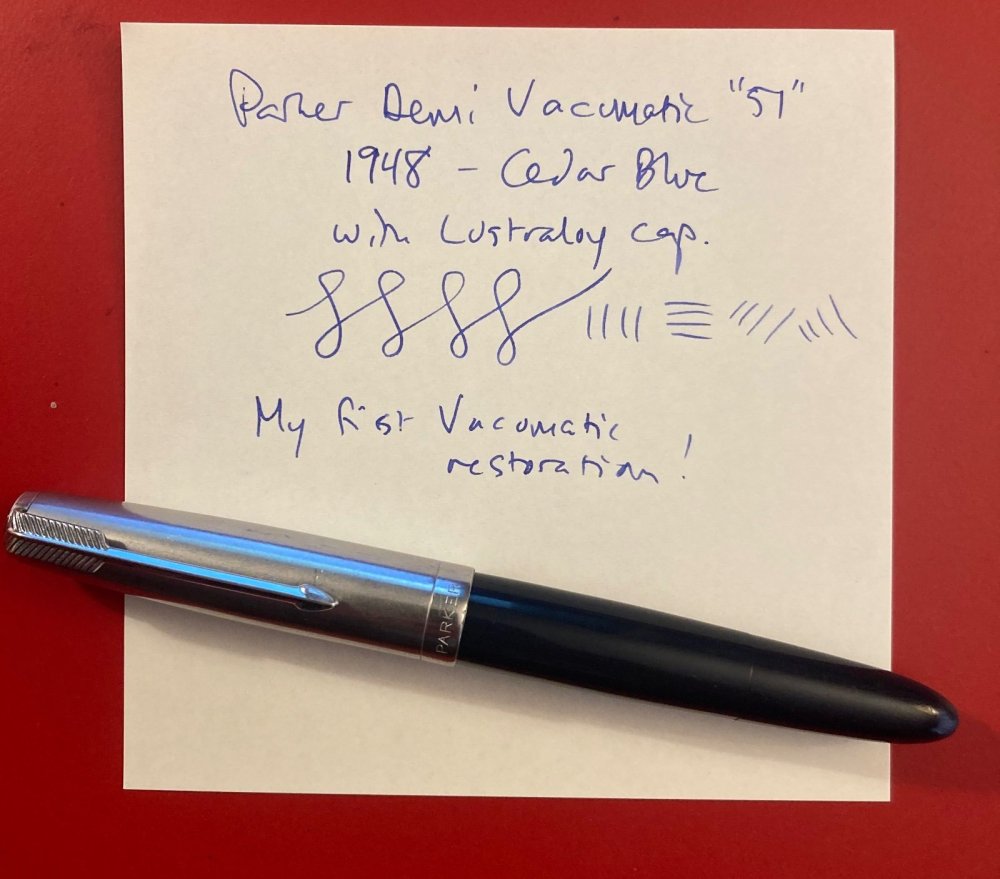 Parker Demi Vacumatic "51"
1948 - Cedar Blue
with Lustraloy cap.
My first Vacumatic
restoration!
PARKER